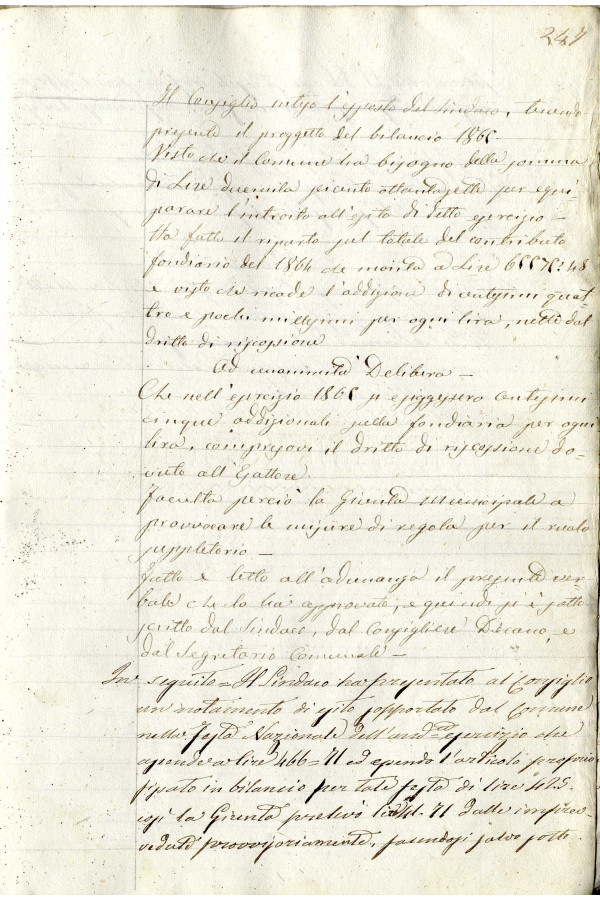 247
Il Consiglio inteso l'esposto del Sindaco, tenendo
presente il proggetto del bilancio 1865-
Visto che il Comune ha bisogno della somma
di Lire duemila seicento ottantasette per equi-
parare l'introito all'esito di detto esercizio -
Ha fatto il riparto sul totale del contributo
fondiario del 1864 che monta a Lire 65570:48
e visto che ricade l'addizione di centesimi quat-
tro e pochi millesimi per ogni lira, netti dal
dritto di riscossione
Ad unanimità Delibera -
Che nell'esercizio 1865 si esiggessero centesimi
cinque addizionali sulla fondiaria per ogni
lira, compresovi il dritto di riscossione do-
vuto all'Esattore.
Facultà perciò la Giunta Municipale a
provvocare le misure di regola per il ruolo
suppletorio -
Fatto e letto all'adunanza il presente ver-
bale che lo ha approvato, e quindi si è sotto-
scritto dal Sindaco, dal Consigliere Decano, e
dal Segretario Comunale -
In seguito = Il Sindaco ha presentato al Consiglio
un notamento di esito sopportato dal Comune
nella Festa Nazionale dell' esercizio che
ascende a lire 466=71 ed essendo l'articolo proprio
fissato in bilancio per tale festa di lire 425.
così la Giunta prelevò 71 dalle impreve-
vedute provvisoriamente, facendosi salvo sotto